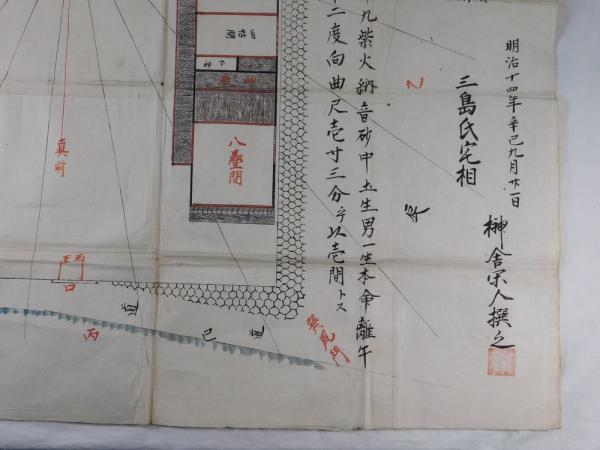 明治十四年辛巳九月廿一日
三島氏宅相
榊舎宋人撰之
九紫火納音砂中土生男一生本命離午
二度向曲尺壱寸三分ヲ以壱間トス
乙
巽風門
八畳間
真前
門
口
道
巳
道
丙